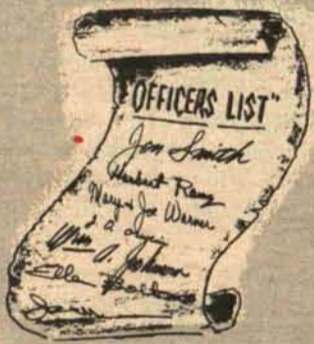 "OFFICERS LIST"
Jon Smith
Herbert Ray
Mary & Joe Warner
Wm. A. Johnson
Ella